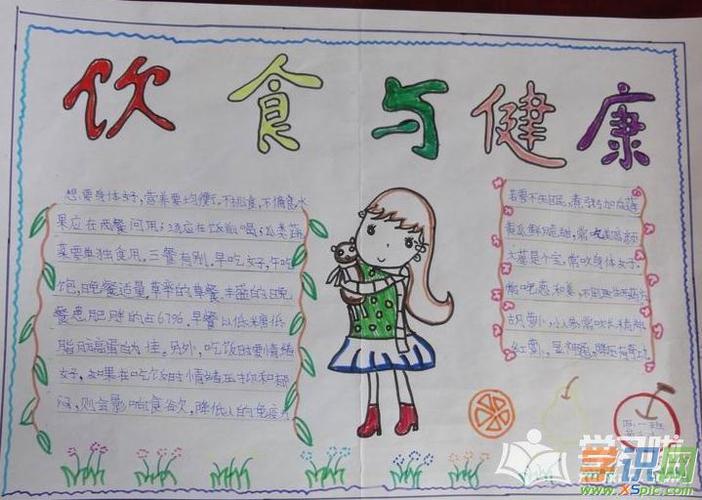 饮食与健康
想要身体好,营养要均衡,不挑食,不偏食,水
果应在两餐间用;汤应在饭前喝;瓜类蔬
菜要单独食用。三餐有别。早吃好,午吃
饱,晚餐适量。草率的早餐,丰盛的晚
餐患肥胖的占67%。早餐以低糖低
脂肪高蛋白为佳。另外,吃饭时要情绪
好,如果在吃饭时情绪压抑和郁
闷,则会影响食欲,降低人的免疫力
大蒜是个宝,常吃身体好
常吃葱和姜
胡萝卜,小人参,常吃长精神
学识网
www.xSpic.com